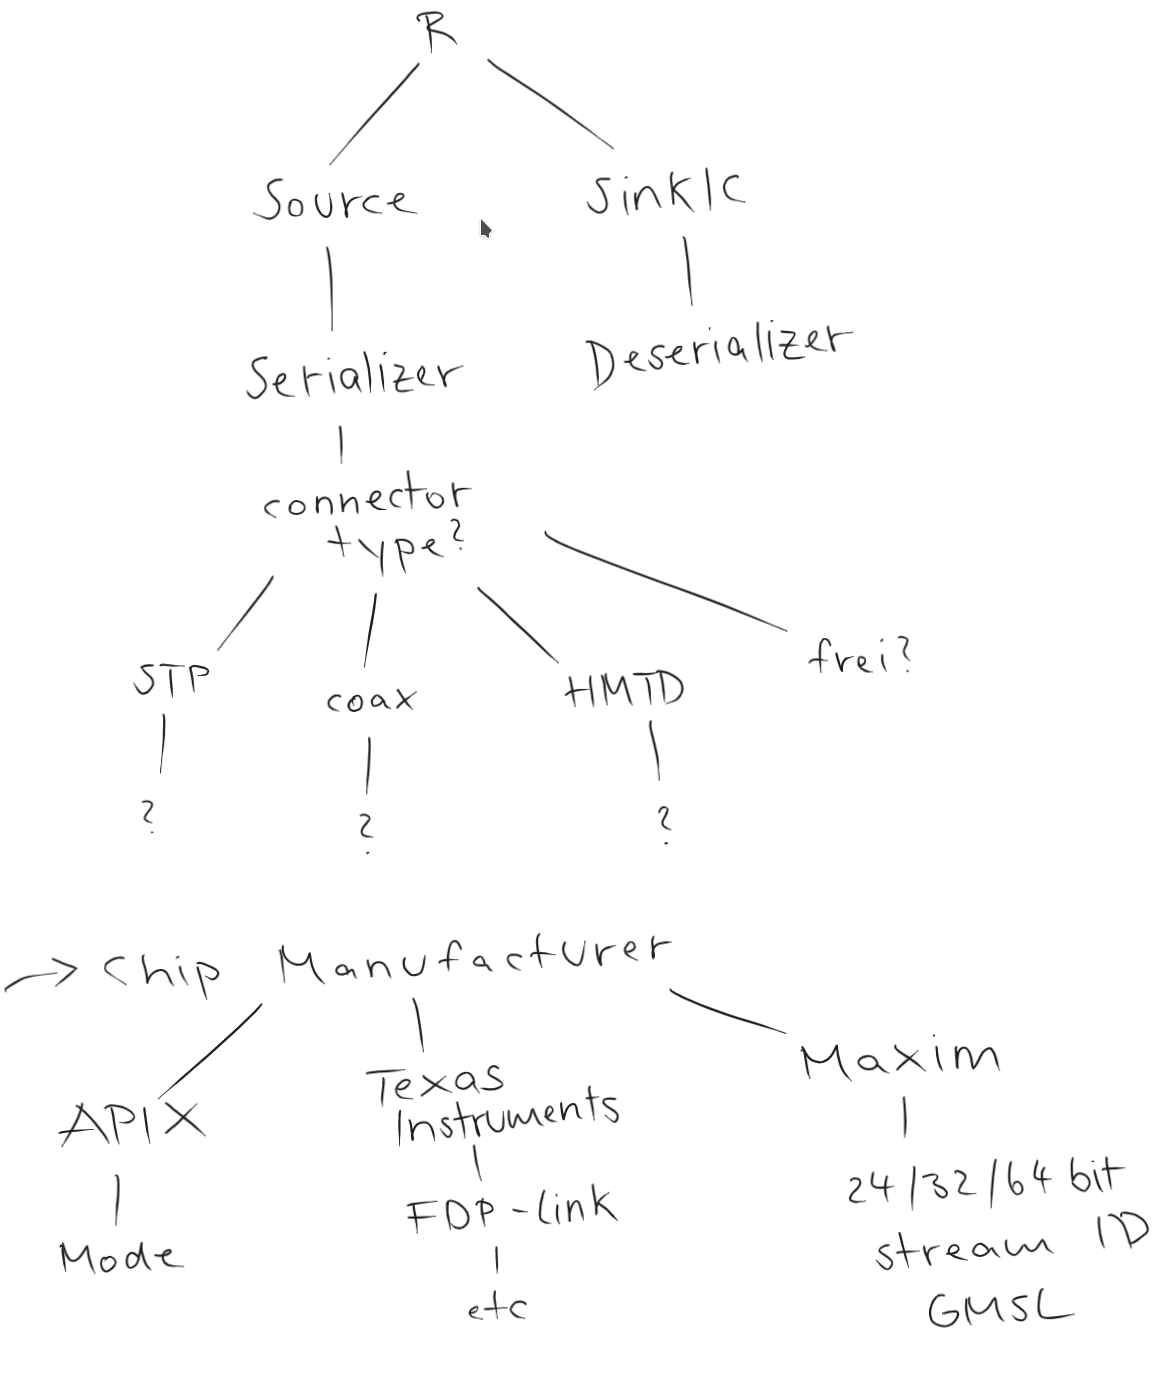 R
Source
SinkIC
Serializer
Deserializer
connector
type?
STP
coax
HMTD
frei?
?
?
?
→ Chip Manufacturer
APIX
Texas
Instruments
Maxim
Mode
FDP-link
etc
24/32/64 bit
stream ID
GMSL